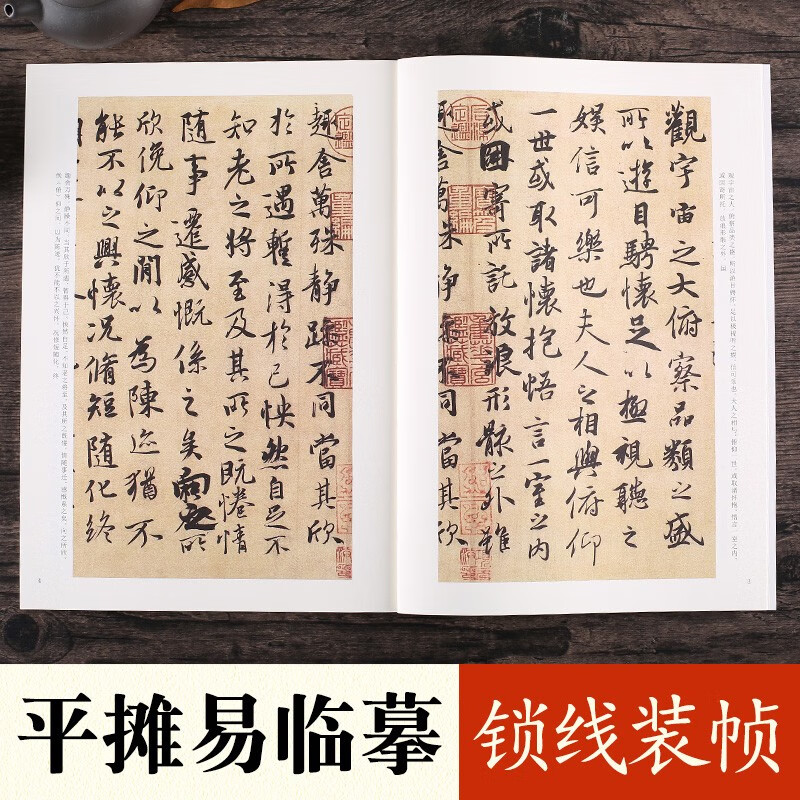 觀宇宙之大俯察品類之盛
所以遊目騁懷足以極視聽之
娛信可樂也夫人之相與俯仰
一世或取諸懷抱悟言一室之內
或因寄所託放浪形骸之外雖
趣舍萬殊静躁不同當其欣
趣舍萬殊静躁不同當其欣
於所遇蹔得於己怏然自足不
知老之將至及其所之既惓情
隨事遷感慨係之矣向之所
欣俛仰之閒以為陳迹猶不
能不以之興懷況脩短隨化終
平摊易临摹
锁线装帧